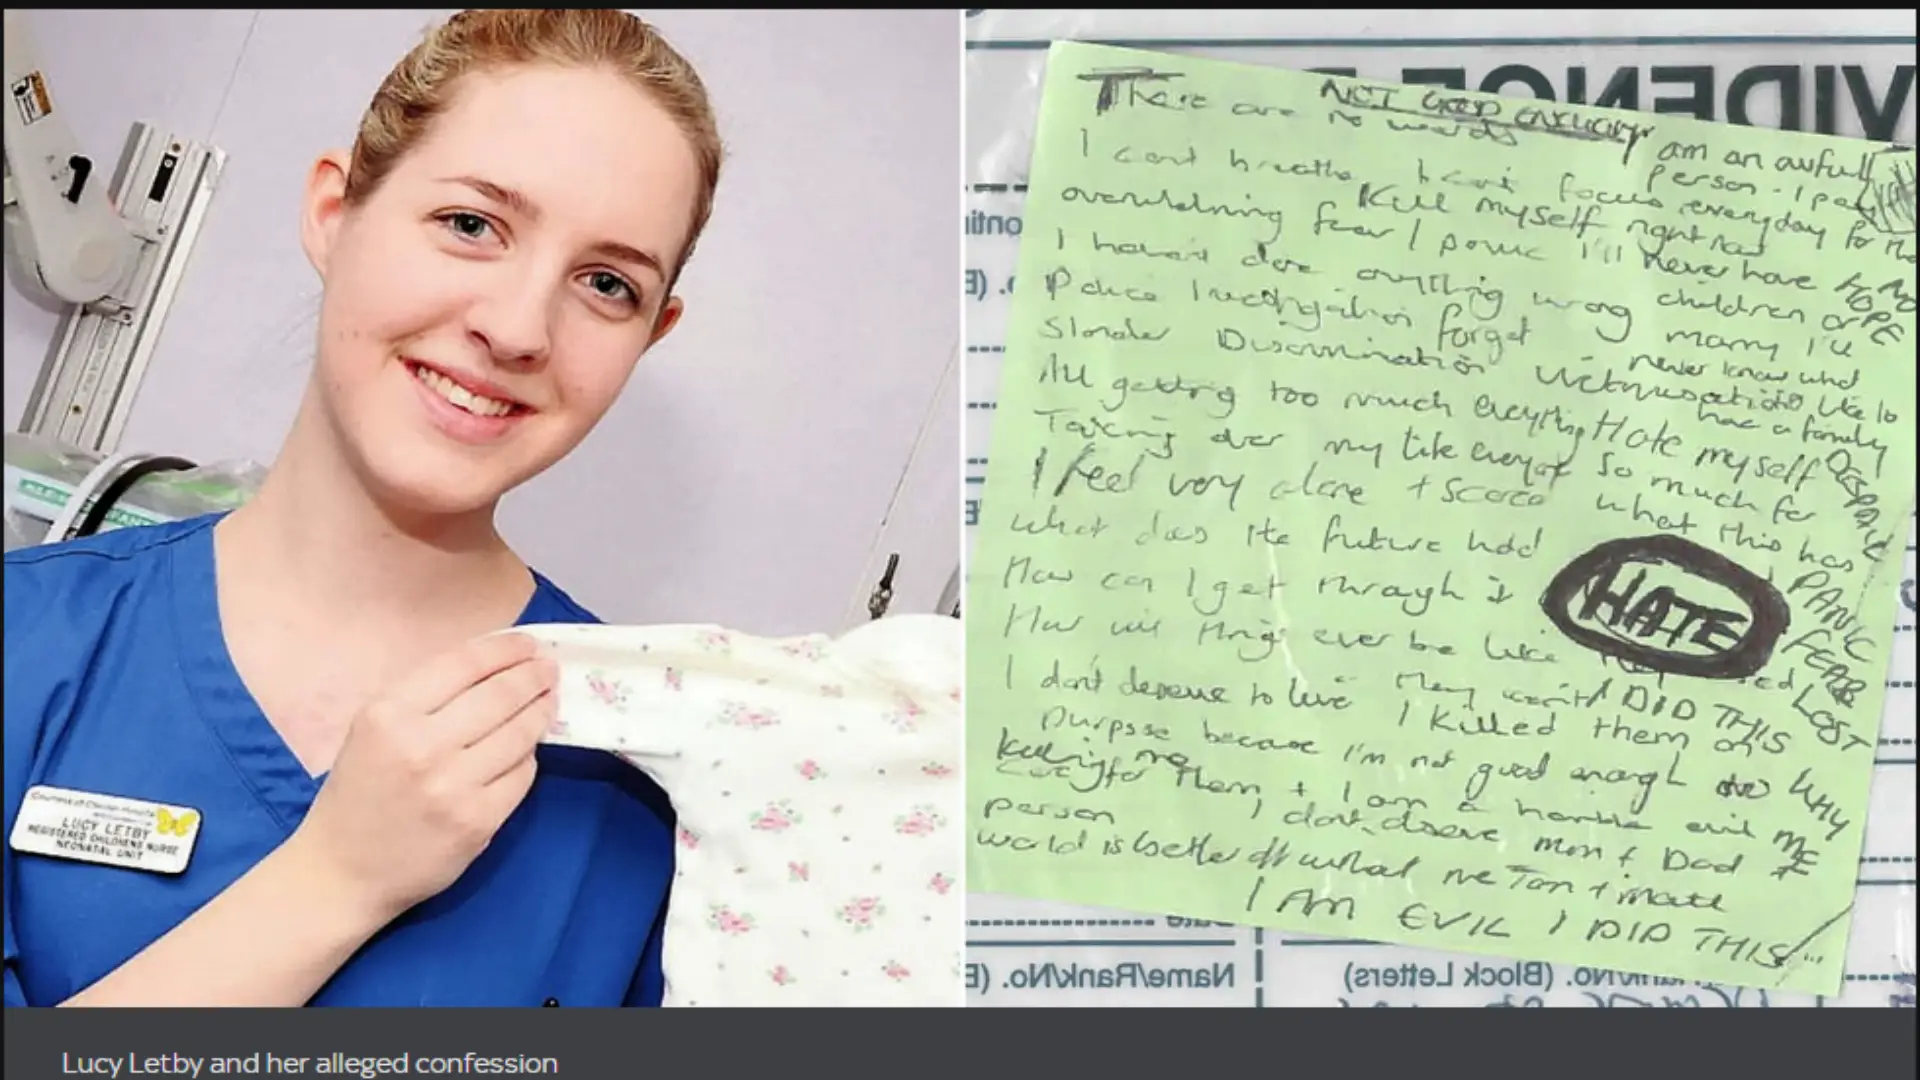 LUCY LETBY
REGISTERED CHILDRENS NURSE
NEONATAL UNIT
VIDENCE
NOT GOOD ENOUGH
There are no words
I am an awful person - I pay
everyday for
I can't breathe I can't focus
Kill myself right now
overwhelming fear / panic
I'll never have children or marry I'll never know what
like to have a family
NO HOPE
I haven't done anything wrong
Police Investigation forget
Slander Discrimination
All getting too much everything
Hate myself so much for what this has
DESPAIR
PANIC
FEAR
LOST
Taking over my life
I feel very alone + scared
What does the future hold
How can I get through it
HATE
How will things ever be like
I don't deserve to live
I DID THIS
WHY ME
I killed them on purpose because I'm not good enough
to care for them + I am a horrible evil person
killing me
I don't deserve mum + Dad
world is better off without me
I AM EVIL I DID THIS
Name/Rank/No. (Block Letters)
Name/Rank/No.
Lucy Letby and her alleged confession